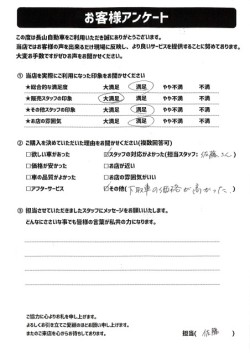 お客様アンケート
この度は長山自動車をご利用いただき誠にありがとうございます。
当店ではお客様の声を出来るだけ現場に反映し、より良いサービスを提供することに努めております。
大変お手数ですがぜひお声をお聞かせください。
① 当店を実際にご利用になった印象をお聞かせください
★総合的な満足度 大満足 満足 やや不満 不満
★販売スタッフの印象 大満足 満足 やや不満 不満
★その他スタッフの印象 大満足 満足 やや不満 不満
★お店の雰囲気 大満足 満足 やや不満 不満
② ご購入を決めていただいた理由をお聞かせください(複数回答可)
□欲しい車があった ☑スタッフの対応がよかった(担当スタッフ: 佐藤さん)
□価格が安かった □お店が近かった
□車の品質がよかった □お店の雰囲気がいい
□アフターサービス ☑その他(下取車の価格が高かった)
③ 担当させていただきましたスタッフにメッセージをお願いいたします。
どんなにささいな事でも皆様の言葉が私共の力になります。
ご協力に心よりお礼を申し上げます。
よろしくお引き立てご愛顧のほどお願い申し上げます。
またのご来店を心からお待ちしております。
担当( 佐藤 )